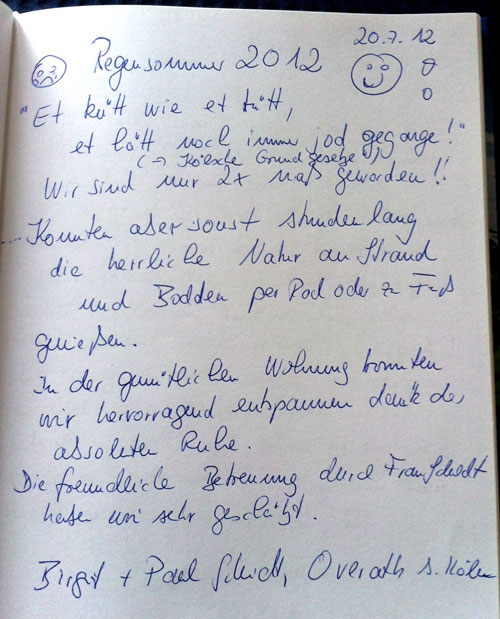 20.7.12
Regensommer 2012
"Et kütt wie et kütt,
et hätt noch immer jod gegange!"
(→ Kölsche Grundgesetze)
Wir sind nur 2x naß geworden!!
... Konnten aber sonst stundenlang
die herrliche Natur an Strand
und Bodden per Rad oder zu Fuß
genießen.
In der gemütlichen Wohnung konnten
wir hervorragend entspannen dank der
absoluten Ruhe.
Die freundliche Betreuung durch Frau
haben wir sehr geschätzt.
Birgit + Paul Overath b. Köln